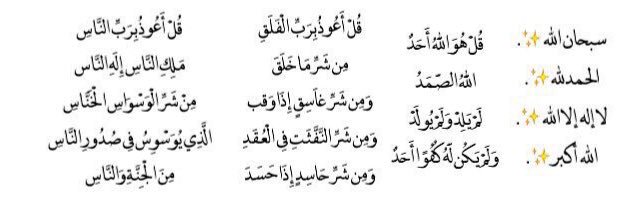 سبحان الله ✨.
الحمدلله ✨.
لا إله إلا الله ✨.
الله أكبر ✨.
قُلْ هُوَ اللَّهُ أَحَدٌ
اللَّهُ الصَّمَدُ
لَمْ يَلِدْ وَلَمْ يُولَدْ
وَلَمْ يَكُن لَّهُ كُفُوًا أَحَدٌ
قُلْ أَعُوذُ بِرَبِّ الْفَلَقِ
مِن شَرِّ مَا خَلَقَ
وَمِن شَرِّ غَاسِقٍ إِذَا وَقَب
وَمِن شَرِّ النَّفَّثَتِ فِي الْعُقَدِ
وَمِن شَرِّ حَاسِدٍ إِذَا حَسَدَ
قُلْ أَعُوذُ بِرَبِّ النَّاسِ
مَلِكِ النَّاسِ إِلَهِ النَّاسِ
مِنْ شَرِّ الْوَسْوَاسِ الْخَنَّاسِ
الَّذِي يُوَسْوِسُ فِي صُدُورِ النَّاسِ
مِنَ الْجِنَّةِ وَالنَّاسِ